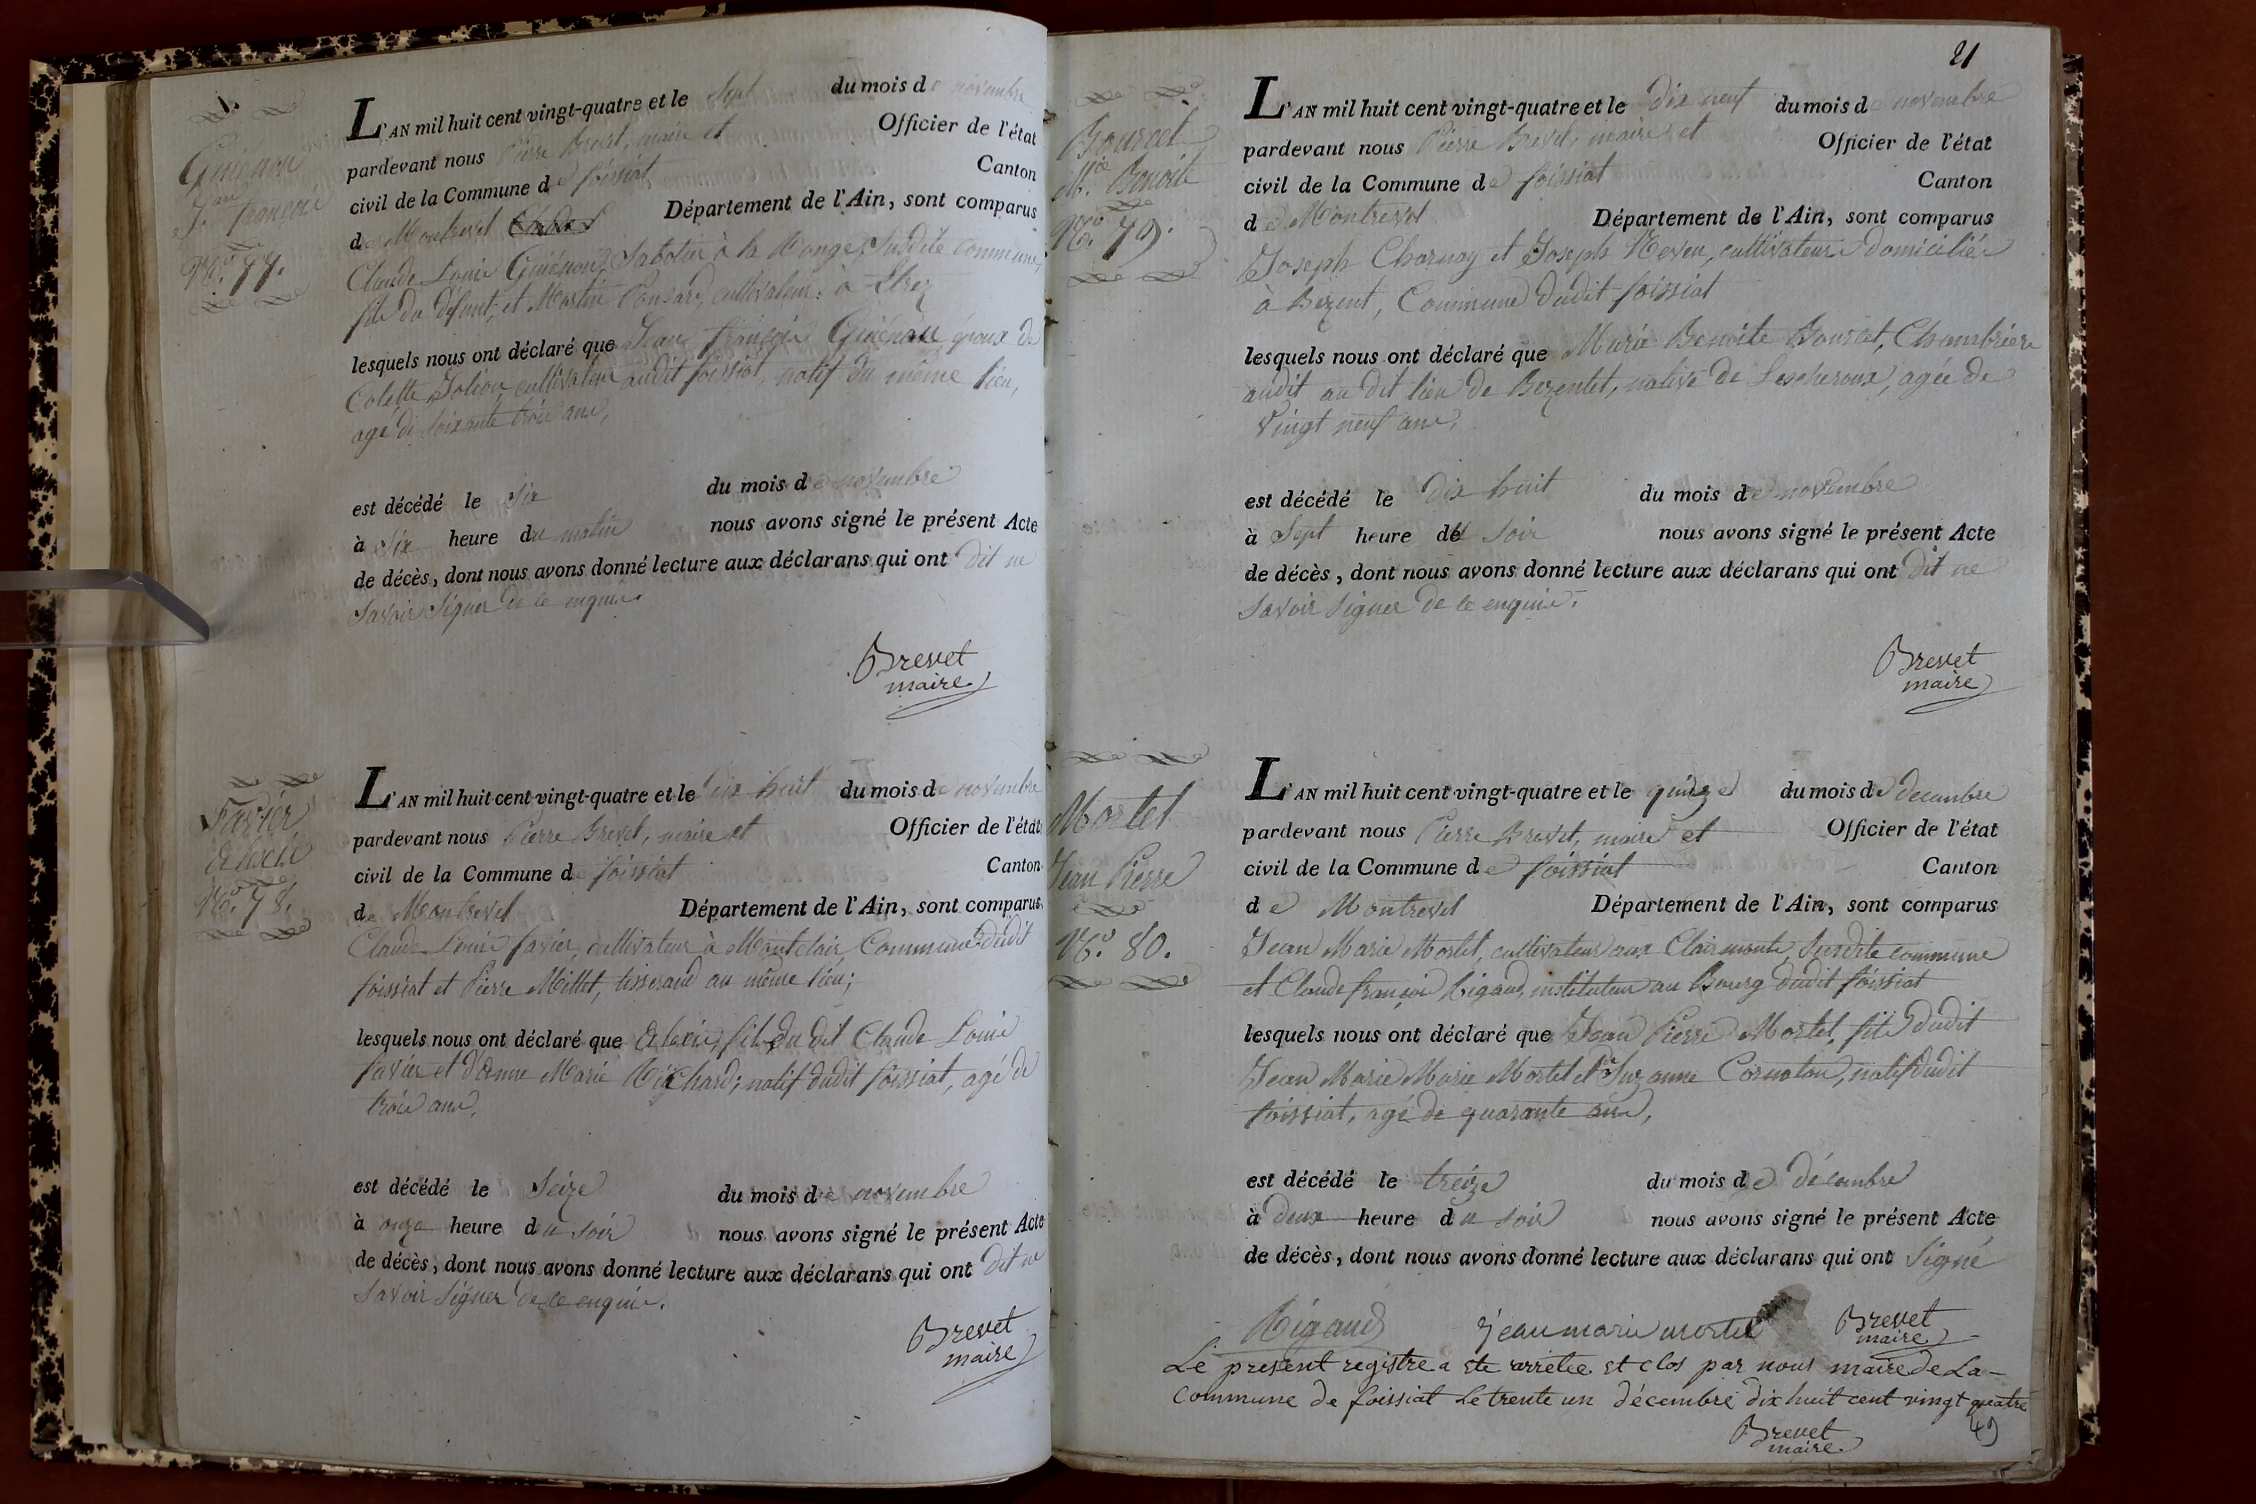 Guénon
Jean françois
No. 77.
L'AN mil huit cent vingt-quatre et le Sept du mois de novembre
pardevant nous Pierre Brevet, maire et Officier de l'état
civil de la Commune de foissiat Canton
de Montrevel Département de l'Ain, sont comparus
Claude Louis Guénon, Sabotier à la susdite commune,
fils du défunt, et Martin Ponsard, cultivateur à Etrez
lesquels nous ont déclaré que Jean françois Guénon époux de
Colette cultivateur audit foissiat, natif du même lieu,
agé de soixante trois ans,
est décédé le Six du mois de novembre
à Six heure du matin nous avons signé le présent Acte
de décès, dont nous avons donné lecture aux déclarans qui ont dit ne
savoir signer de ce enquis.
Brevet
maire
Favier
alexis
No. 78.
L'AN mil huit cent vingt-quatre et le dix huit du mois de novembre
pardevant nous Pierre Brevet, maire et Officier de l'état
civil de la Commune de foissiat Canton
de Montrevel Département de l'Ain, sont comparus
Claude Louis favier, cultivateur à Montclair, Commune dudit
foissiat et Pierre Millet, tisserand au même lieu;
lesquels nous ont déclaré que alexis, fils du dit Claude Louis
favier et d'anne Marie Richard; natif dudit foissiat, agé de
trois ans,
est décédé le Seize du mois de novembre
à onze heure du soir nous avons signé le présent Acte
de décès, dont nous avons donné lecture aux déclarans qui ont dit ne
savoir signer de ce enquis.
Brevet
maire
21
Bourcet
Mie. Benoite
No. 79.
L'AN mil huit cent vingt-quatre et le dix neuf du mois de novembre
pardevant nous Pierre Brevet, maire et Officier de l'état
civil de la Commune de foissiat Canton
de Montrevel Département de l'Ain, sont comparus
Joseph Charnay et Joseph cultivateurs domiciliés
à Bezent, Commune dudit foissiat
lesquels nous ont déclaré que Marie Benoite Bourcet, Chambrière
audit au dit lieu de Bezentet, native de Lescheroux, agée de
vingt neuf ans,
est décédé le dix huit du mois de novembre
à Sept heure de soir nous avons signé le présent Acte
de décès, dont nous avons donné lecture aux déclarans qui ont dit ne
savoir signer de ce enquis.
Brevet
maire
Mortel
Jean Pierre
No. 80.
L'AN mil huit cent vingt-quatre et le quinze du mois de decembre
pardevant nous Pierre Brevet, maire et Officier de l'état
civil de la Commune de foissiat Canton
de Montrevel Département de l'Ain, sont comparus
Jean Marie Mortel, cultivateur aux Clairmonts, susdite commune
et Claude françois Rigaud, instituteur au Bourg dudit foissiat
lesquels nous ont déclaré que Jean Pierre Mortel, fils dudit
Jean Marie Marie Mortel et Suzanne Cornaton, natif dudit
foissiat, agé de quarante ans,
est décédé le treize du mois de décembre
à deux heure du soir nous avons signé le présent Acte
de décès, dont nous avons donné lecture aux déclarans qui ont signé
Rigaud jean marie mortel Brevet
maire
Le present registre a ete arretee et clos par nous maire de La-
commune de foissiat Le trente un décembre dix huit cent vingt quatre
Brevet
maire
49